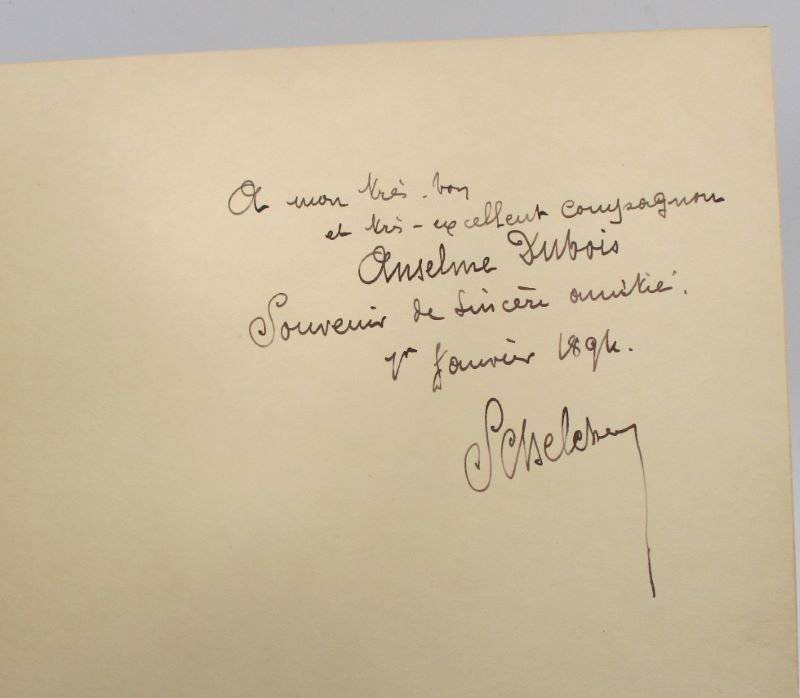 A mon très-bon
et très-excellent compagnon
Anselme Dubois
Souvenir de sincère amitié.
1r Janvier 1894.